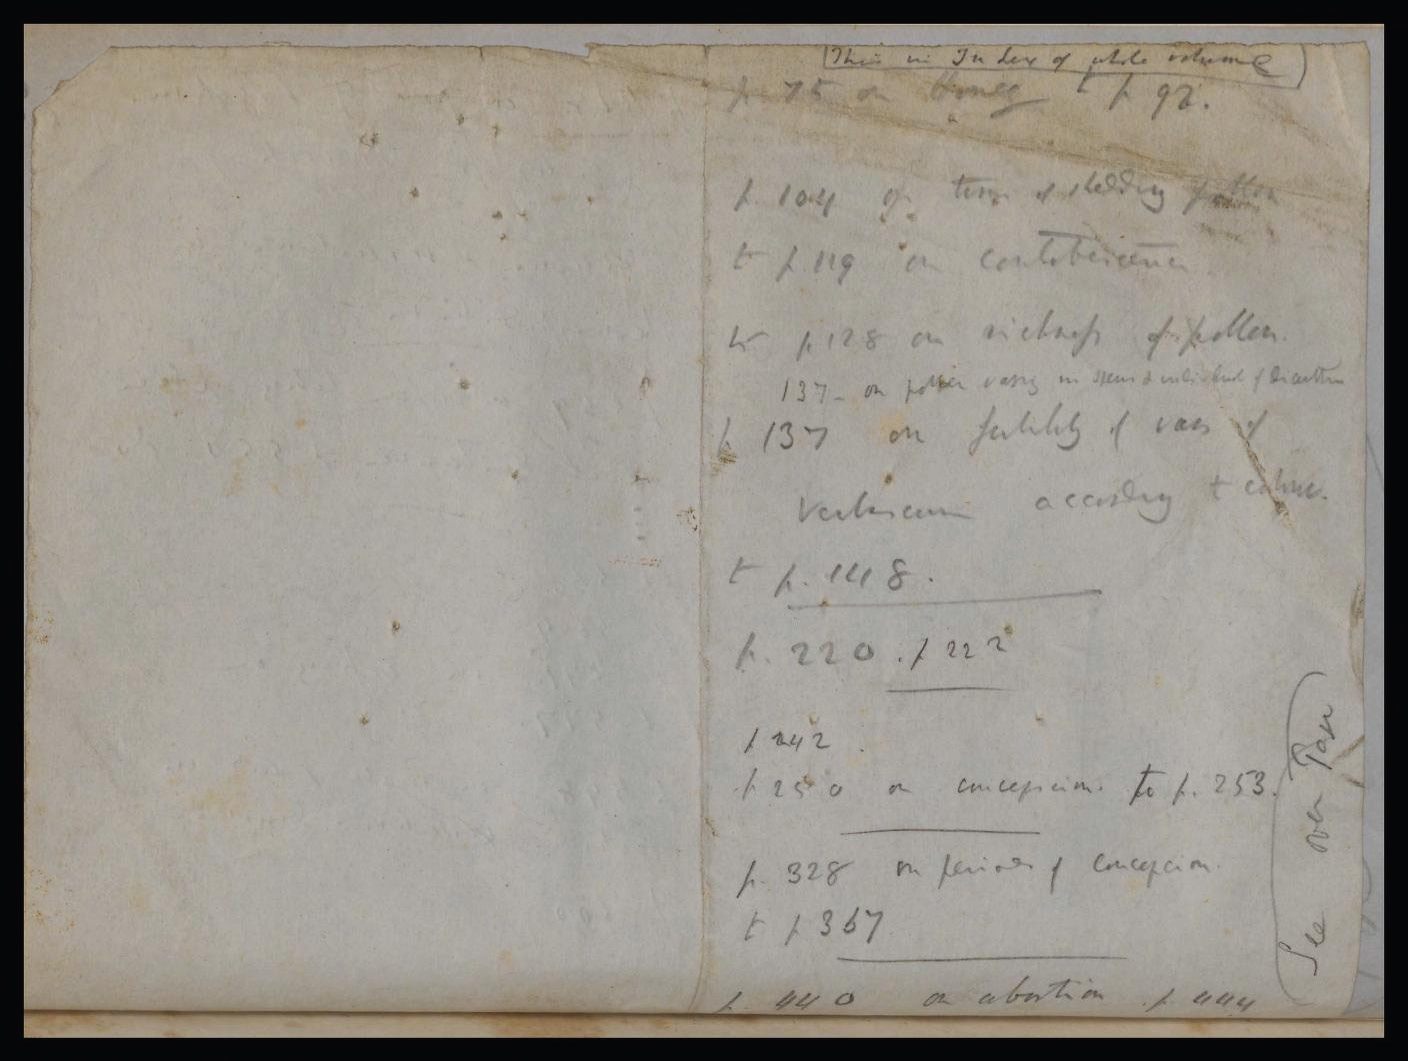 This in Index of whole volume
p. 75 on Honey to p 92.
p. 104 on time of shedding pollen
to p. 119 on contabescence
to p. 128 on richness of pollen.
137 - on pollen varying in & individual of Dianthus
p 137 on fertility of vars of
Verbascum according to colour.
to p. 148.
p. 220 . p 222
p 242
p 250 on conception to p. 253.
p. 328 on period of conception
to p 367
p. 440 on abortion p 444
See over Page